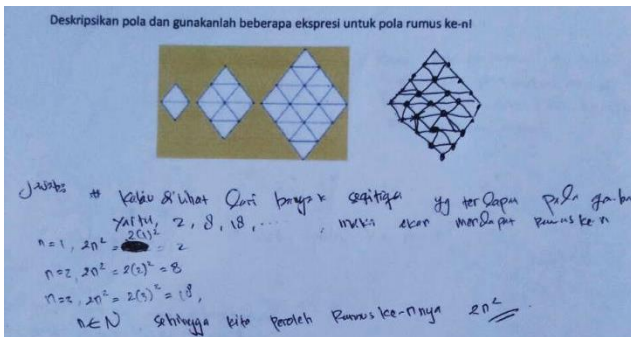 Deskripsikan pola dan gunakanlah beberapa ekspresi untuk pola rumus ke-n!
Jwab: # Kalau dilihat dari banyak segitiga yg terdapat pada gambar
yaitu, 2, 8, 18, ... , maka akan mendapat rumus ke n
n=1, 2n² = 2(1)² = 2
n=2, 2n² = 2(2)² = 8
n=3, 2n² = 2(3)² = 18,
n∈N sehingga kita peroleh Rumus ke-nnya 2n²